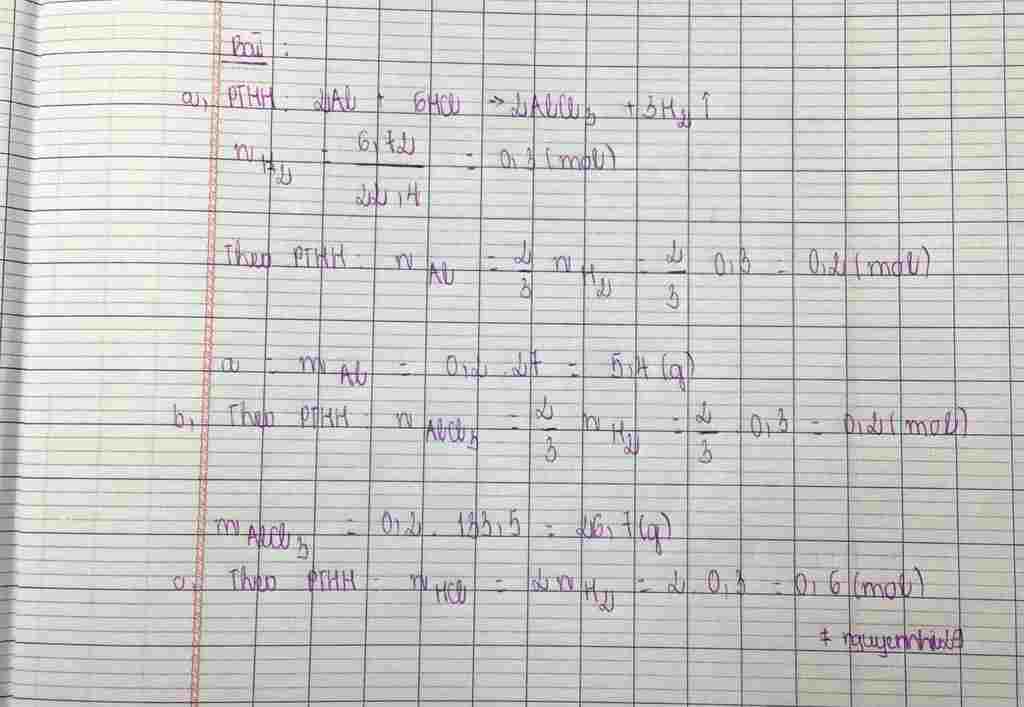 Bài :
a, PTHH : 2Al + 6HCl → 2AlCl₃ + 3H₂ ↑
n H₂ = 6,72 / 22,4 = 0,3 (mol)
Theo PTHH : n Al = 2/3 n H₂ = 2/3 . 0,3 = 0,2 (mol)
a = m Al = 0,2 . 27 = 5,4 (g)
b, Theo PTHH : n AlCl₃ = 2/3 n H₂ = 2/3 . 0,3 = 0,2 (mol)
m AlCl₃ = 0,2 . 133,5 = 26,7 (g)
c, Theo PTHH : n HCl = 2 n H₂ = 2 . 0,3 = 0,6 (mol)